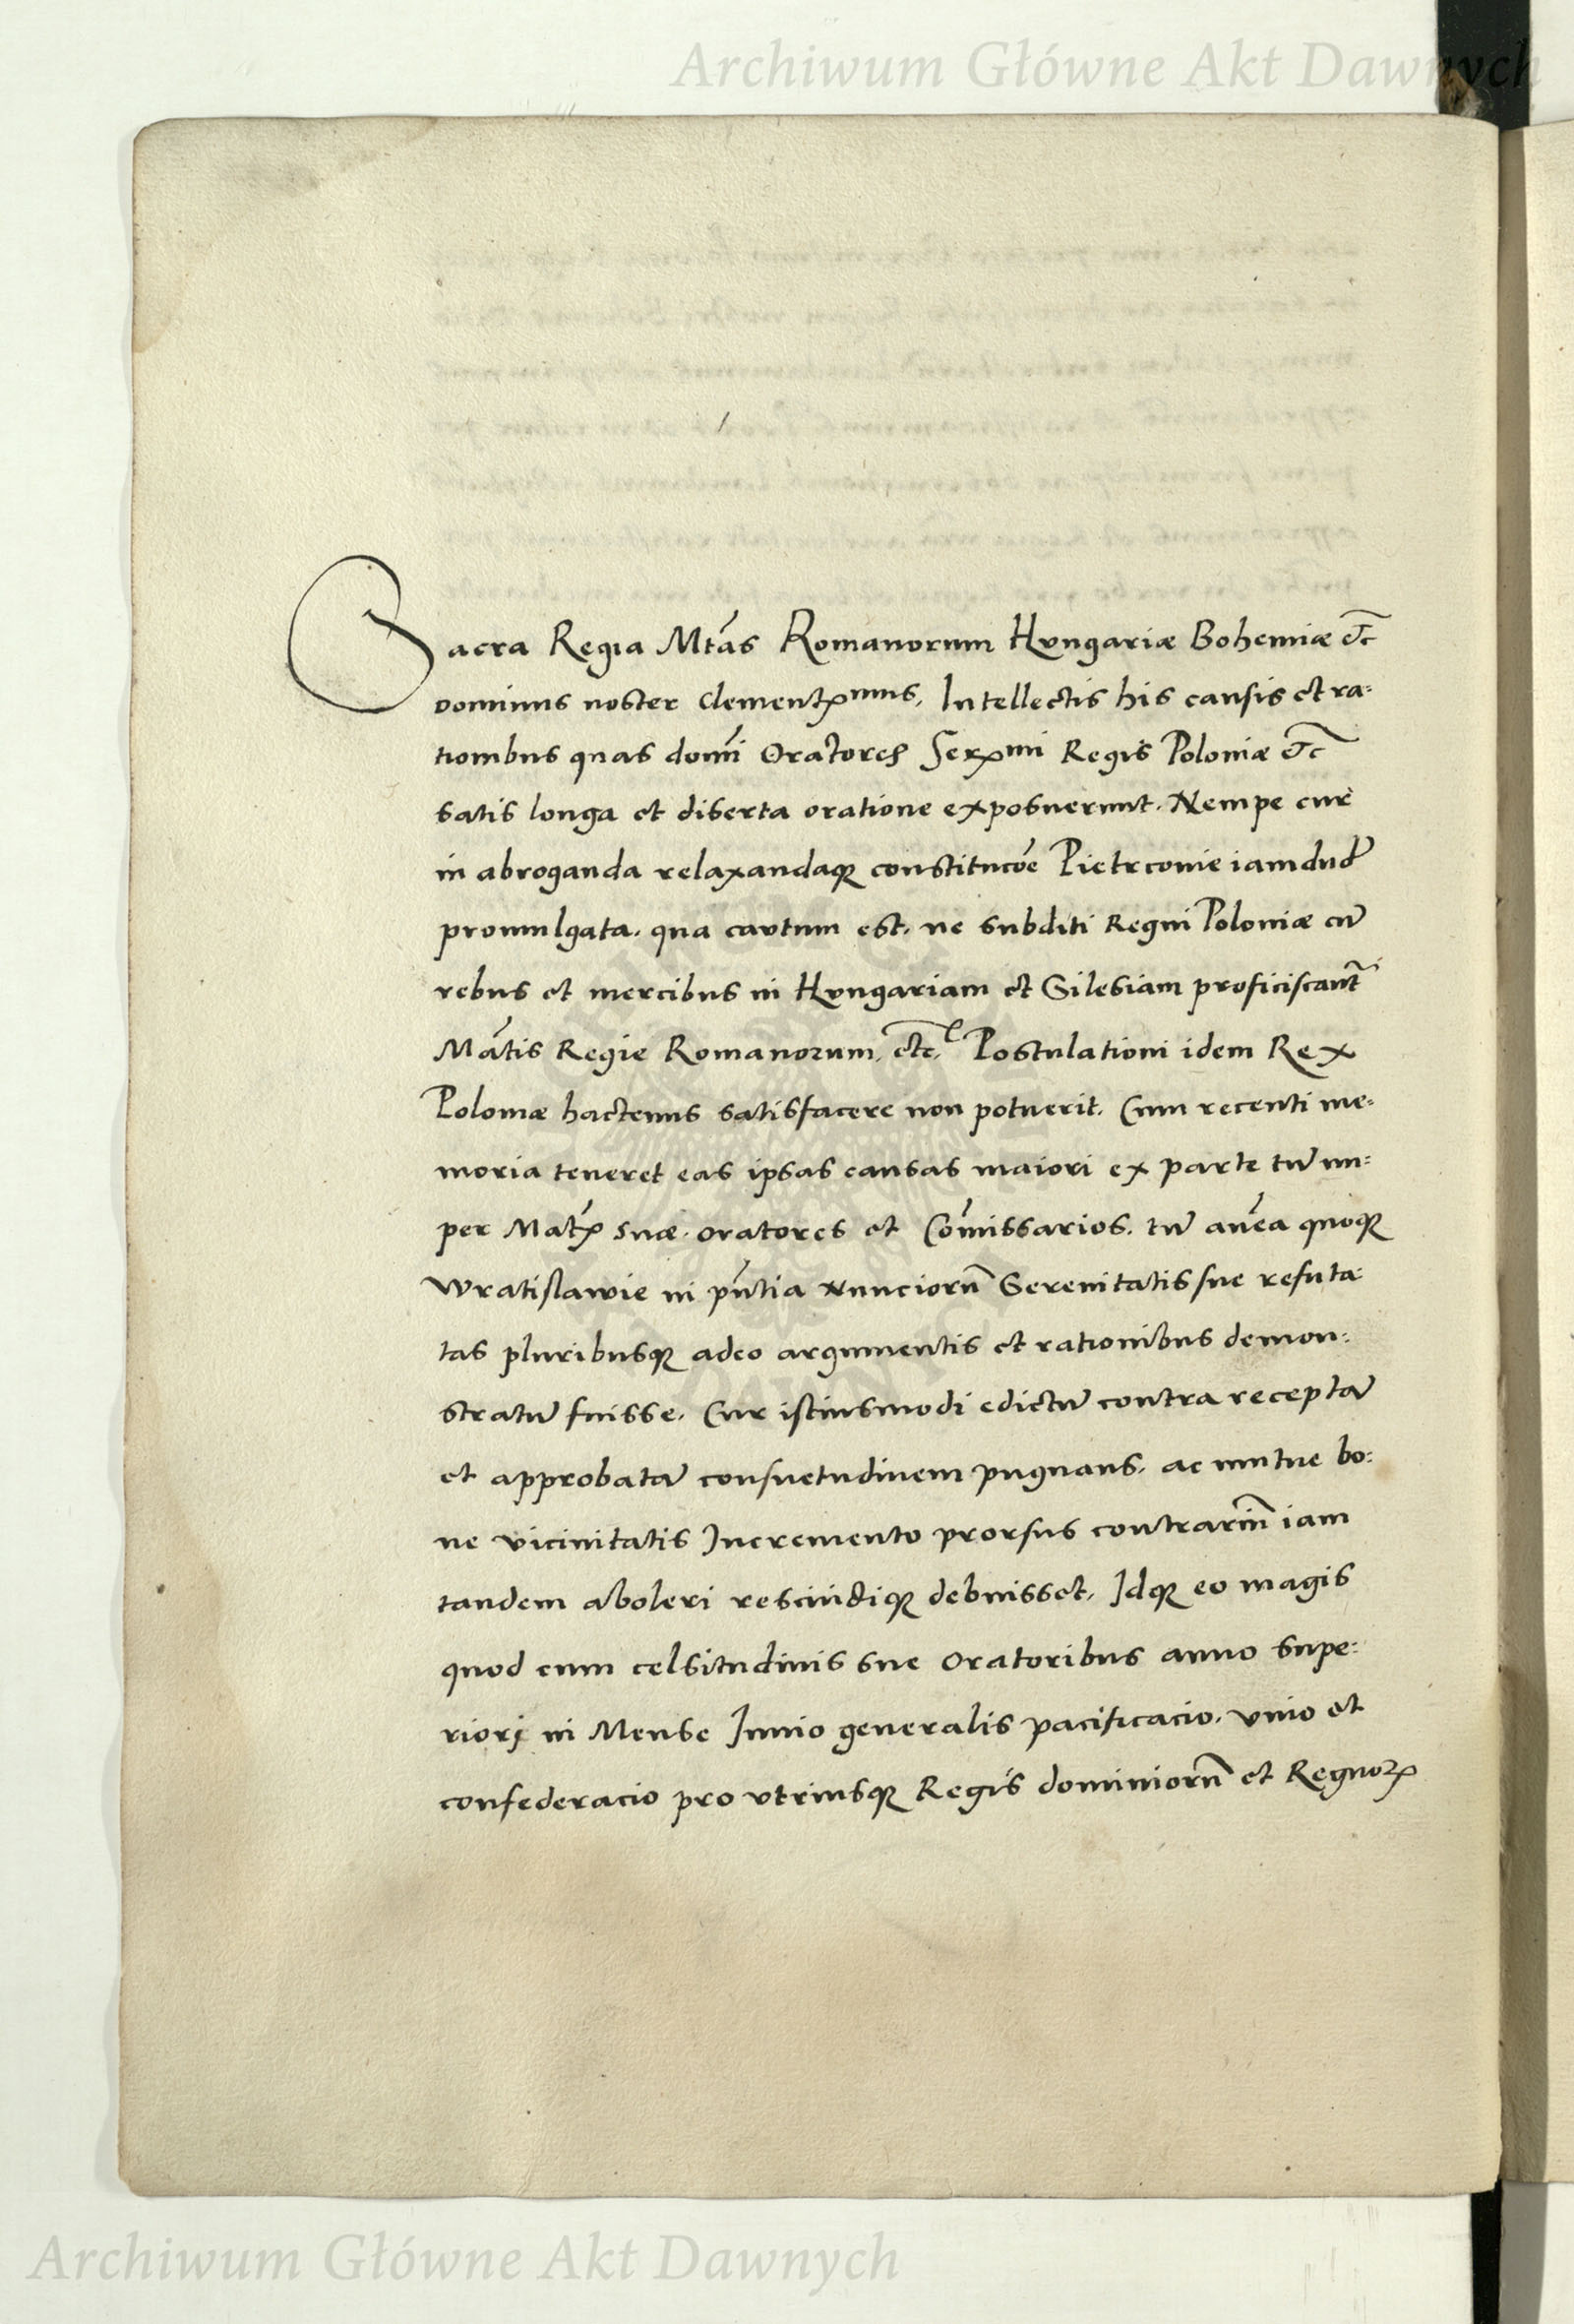 Archiwum Główne Akt Dawnych
Sacra Regia Mtás Romanorum Hungariæ Bohemiæ etc̃
Dominus noster Clementꝭmus, Intellectis his causis et ra:
tionibus quas domĩ Oratores Serꝭmi Regis Poloniæ etc̃
satis longa et diserta oratione exposuerunt. Nempe cur
in abroganda relaxandaqꝫ constitucõe Pietrconie iamdud̃
promulgata, qua cautum est, ne subditi Regni Poloniæ cũ
rebus et mercibus in Hungariam et Silesiam proficiscant᷑
Mátis Regie Romanorum, etc. Postulationi idem Rex
Poloniæ hactenus satisfacere non potuerit. Cum recenti me:
moria teneret eas ipsas causas maiori ex parte tũ nu:
per Matꝭ suæ oratores et Com̃issarios, tũ an̄ea quoqꝫ
Wratislawie in pñtia Nunciorũ Serenitatis sue refuta:
tas pluribusqꝫ adeo argumentis et rationibus demon:
stratũ fuisse. Cur istiusmodi edictũ contra receptã
et approbatã consuetudinem pugnans, ac mutue bo:
ne vicinitatis Incremento prorsus contrariũ iam
tandem aboleri rescindiqꝫ debuisset, Idqꝫ eo magis
quod cum celsitudinis sue Oratoribus anno supe:
riori in Mense Iunio generalis pacificacio, vnio et
confederacio pro vtriusqꝫ Regis dominiorũ et Regnoꝝ
Archiwum Główne Akt Dawnych